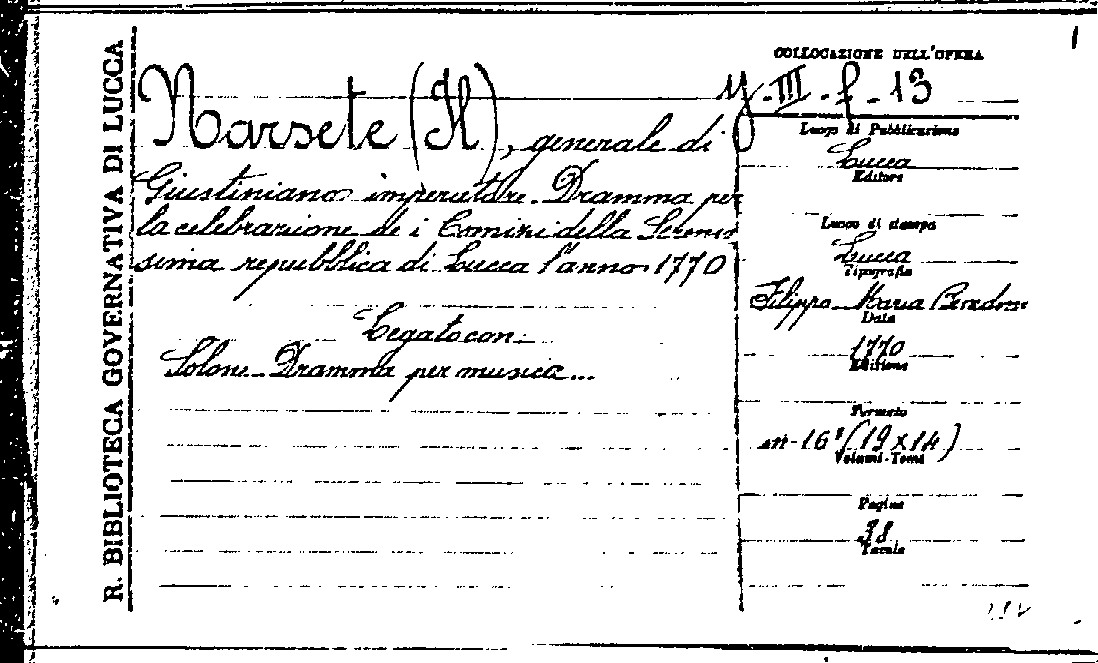 R. BIBLIOTECA GOVERNATIVA DI LUCCA
Narsete (Il), generale di
Giustiniano imperatore. Dramma per
la celebrazione de i Comizi della Serenis
sima repubblica di Lucca l'anno 1770
Legato con
Solone. Dramma per musica...
1
COLLOCAZIONE DELL'OPERA
y - III - f - 13
Luogo di Pubblicazione
Lucca
Editore
Luogo di stampa
Lucca
Tipografia
Filippo Maria Benedini
Data
1770
Edizione
Formato
in-16° (19 x 14)
Volumi-Tomi
Pagine
38
Tavole